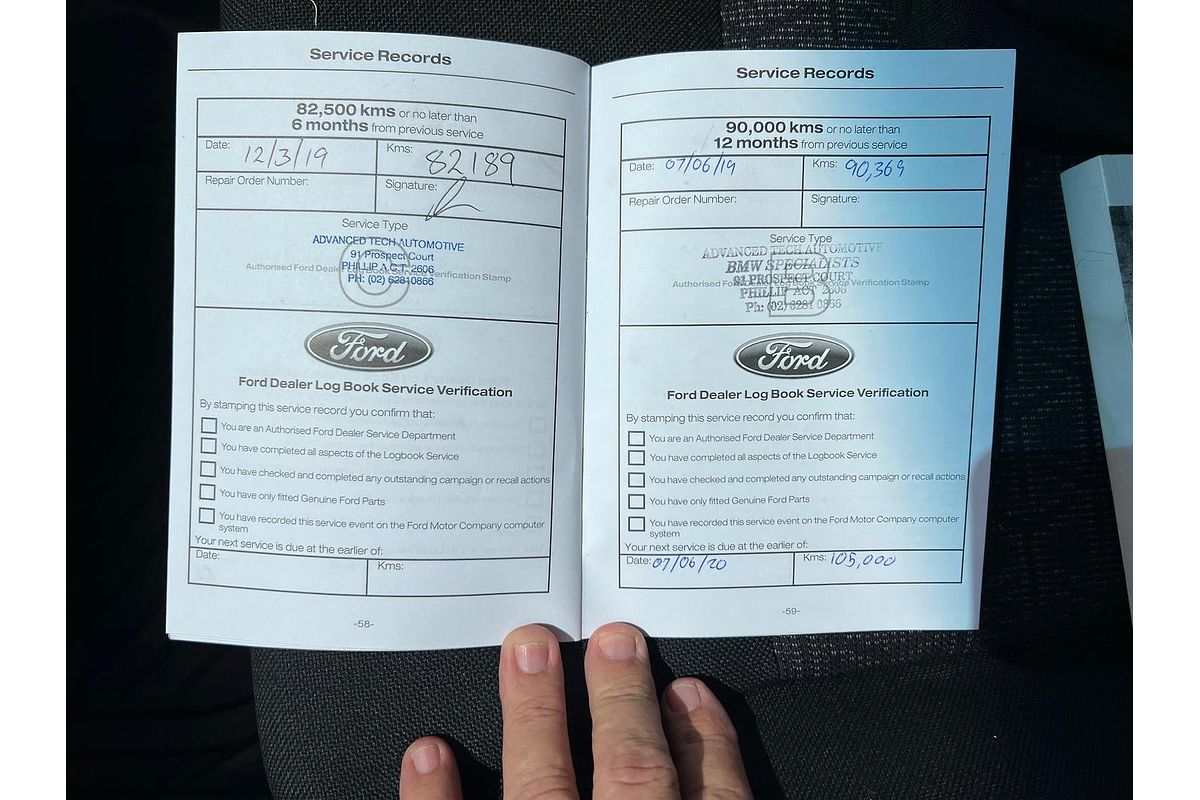 Service Records
82,500 kms or no later than
6 months from previous service
Date: 12/3/19
Kms: 82189
Repair Order Number:
Signature:
Service Type
ADVANCED TECH AUTOMOTIVE
91 Prospect Court
Authorised Ford Dealer Log Book Service Verification Stamp
PHILLIP A.C.T. 2606
PH: (02) 6281 0866
Ford
Ford Dealer Log Book Service Verification
By stamping this service record you confirm that:
You are an Authorised Ford Dealer Service Department
You have completed all aspects of the Logbook Service
You have checked and completed any outstanding campaign or recall actions
You have only fitted Genuine Ford Parts
You have recorded this service event on the Ford Motor Company computer
system
Your next service is due at the earlier of:
Date:
Kms:
-58-
Service Records
90,000 kms or no later than
12 months from previous service
Date: 07/06/19
Kms: 90,369
Repair Order Number:
Signature:
Service Type
ADVANCED TECH AUTOMOTIVE
BMW SPECIALISTS
91 PROSPECT COURT
Authorised Ford Dealer Log Book Service Verification Stamp
PHILLIP ACT 2606
Ph: (02) 6281 0866
Ford
Ford Dealer Log Book Service Verification
By stamping this service record you confirm that:
You are an Authorised Ford Dealer Service Department
You have completed all aspects of the Logbook Service
You have checked and completed any outstanding campaign or recall actions
You have only fitted Genuine Ford Parts
You have recorded this service event on the Ford Motor Company computer
system
Your next service is due at the earlier of:
Date: 07/06/20
Kms: 105,000
-59-